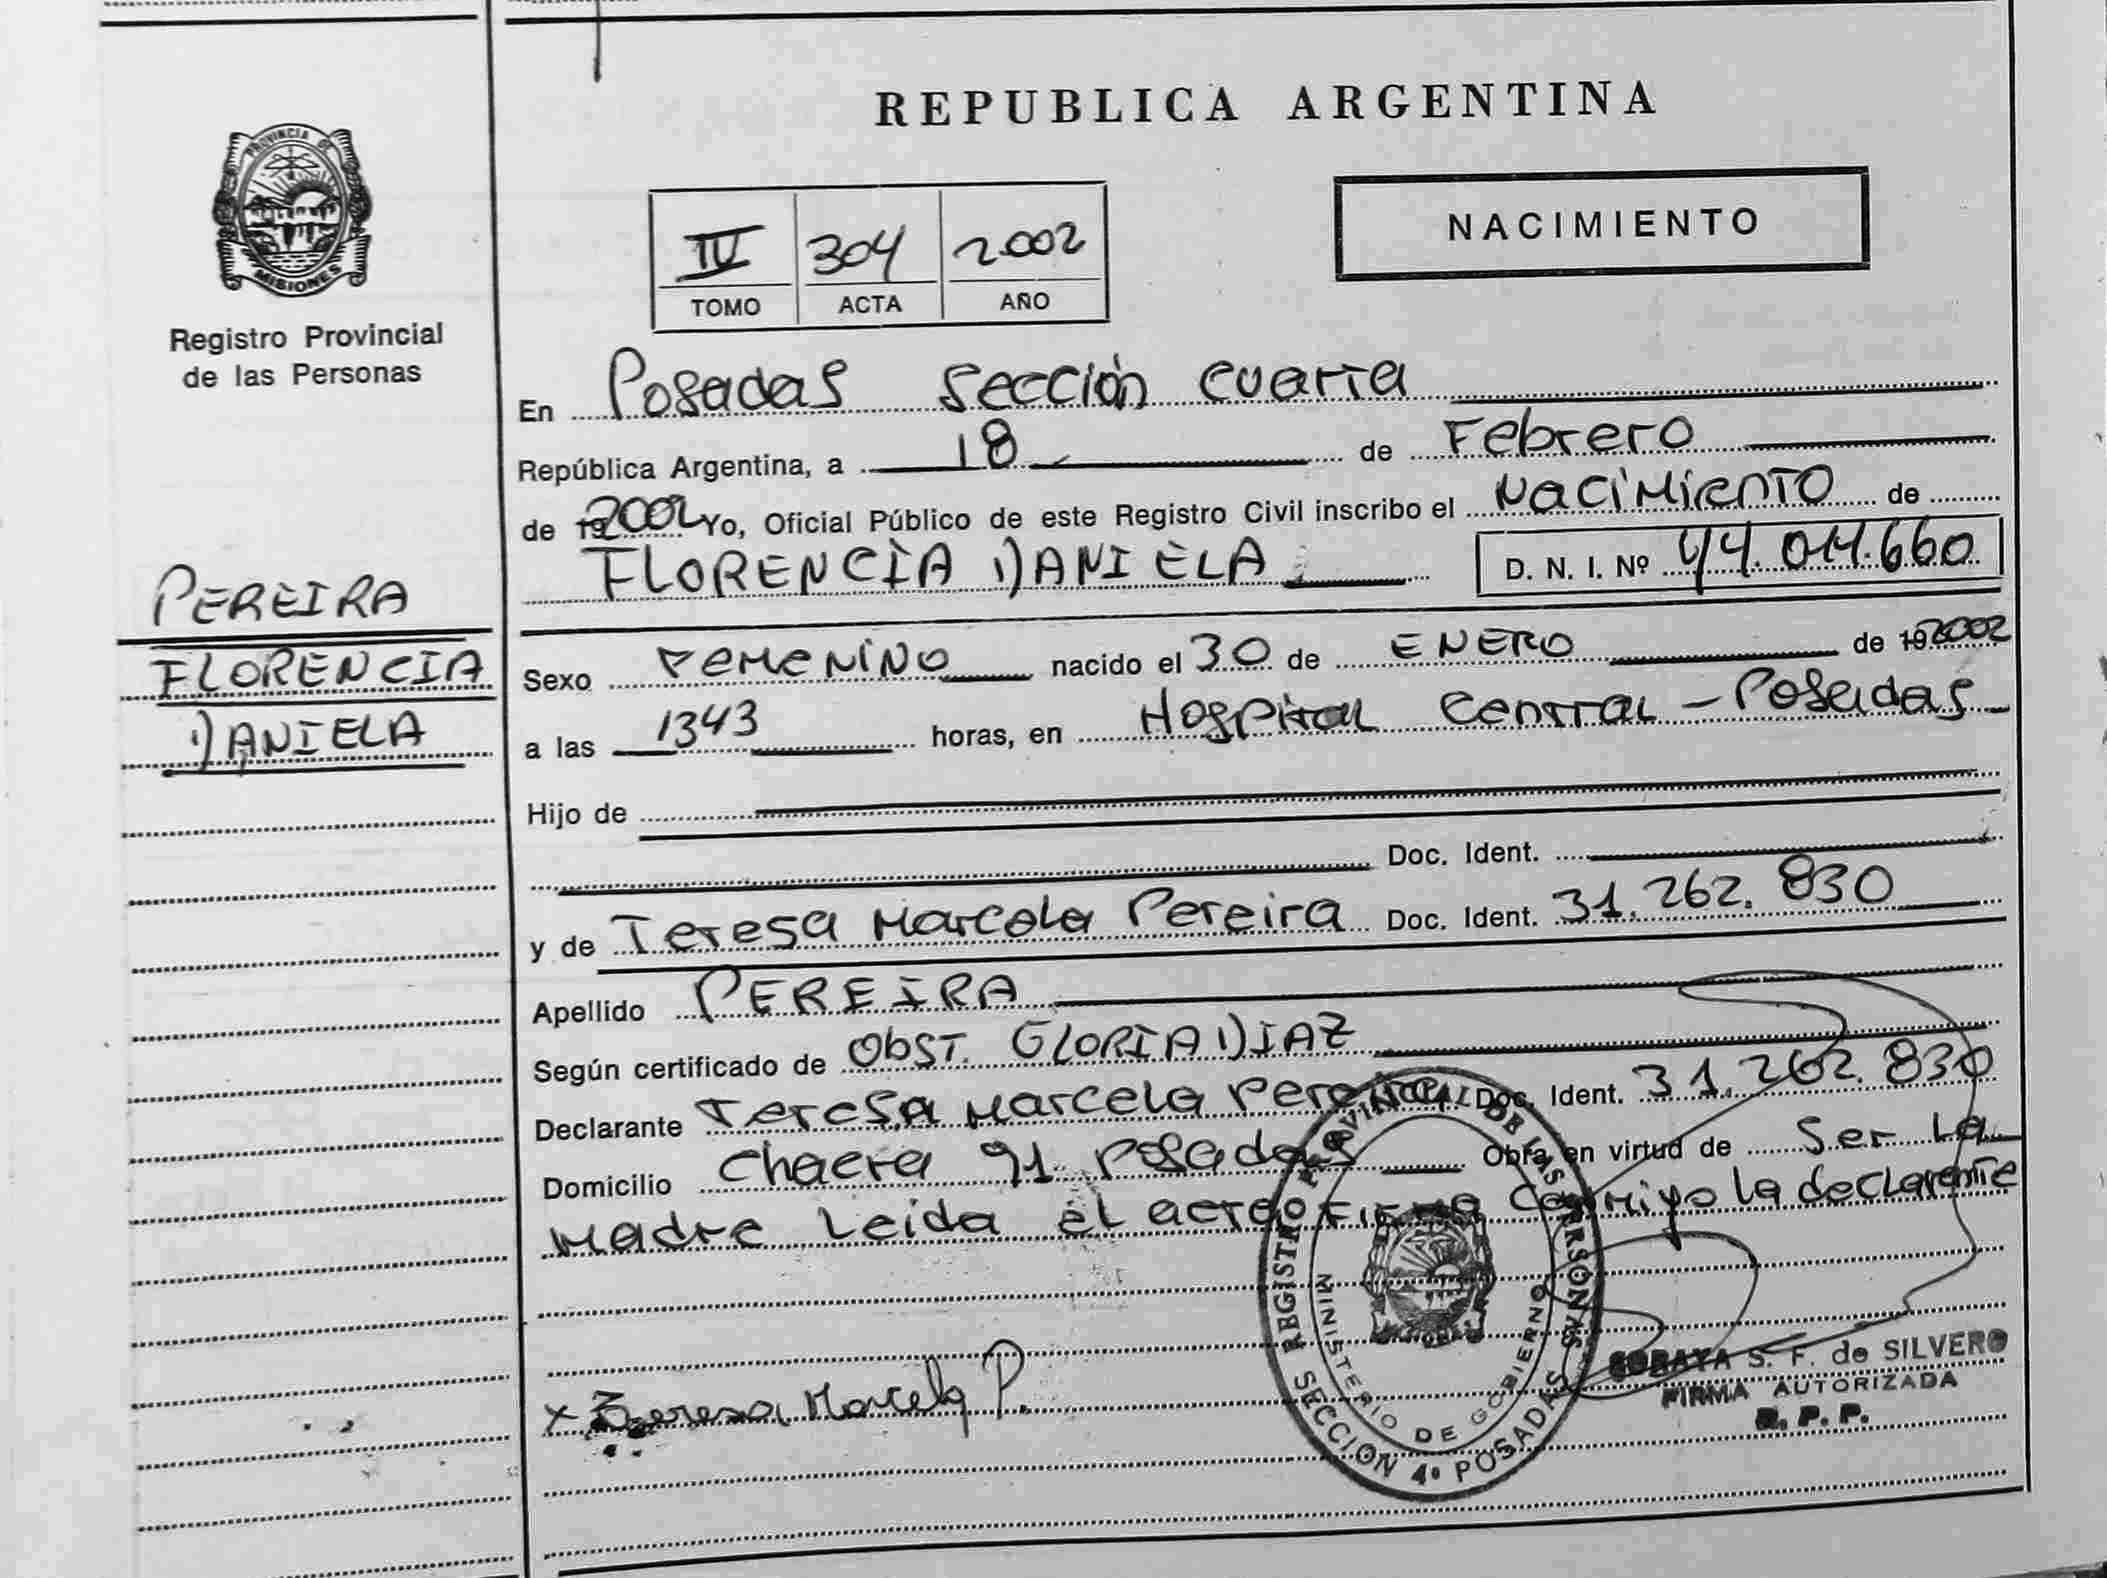 PROVINCIA DE
MISIONES
Registro Provincial
de las Personas
PEREIRA
FLORENCIA
DANIELA
REPUBLICA ARGENTINA
IV 304 2002
TOMO ACTA AÑO
NACIMIENTO
En Posadas sección cuarta
República Argentina, a 18 de Febrero
de 19 2002 Yo, Oficial Público de este Registro Civil inscribo el Nacimiento de
FLORENCIA DANIELA D. N. I. Nº 44.011.660
Sexo Femenino nacido el 30 de ENERO de 19 2002
a las 1343 horas, en Hospital Central - Posadas
Hijo de
Doc. Ident.
y de Teresa Marcela Pereira Doc. Ident. 31.262.830
Apellido PEREIRA
Según certificado de Obst. GLORIA DIAZ
Declarante Teresa Marcela Pereira Doc. Ident. 31.262.830
Domicilio Chacra 91 Posadas Obra en virtud de Ser La
Madre Leida el acta firma conmigo la declarante
x Teresa Marcela P.
REGISTRO PROVINCIAL DE LAS PERSONAS
MINISTERIO DE GOBIERNO
SECCION 4º POSADAS
SORAYA S. F. de SILVERO
FIRMA AUTORIZADA
R. P. P.